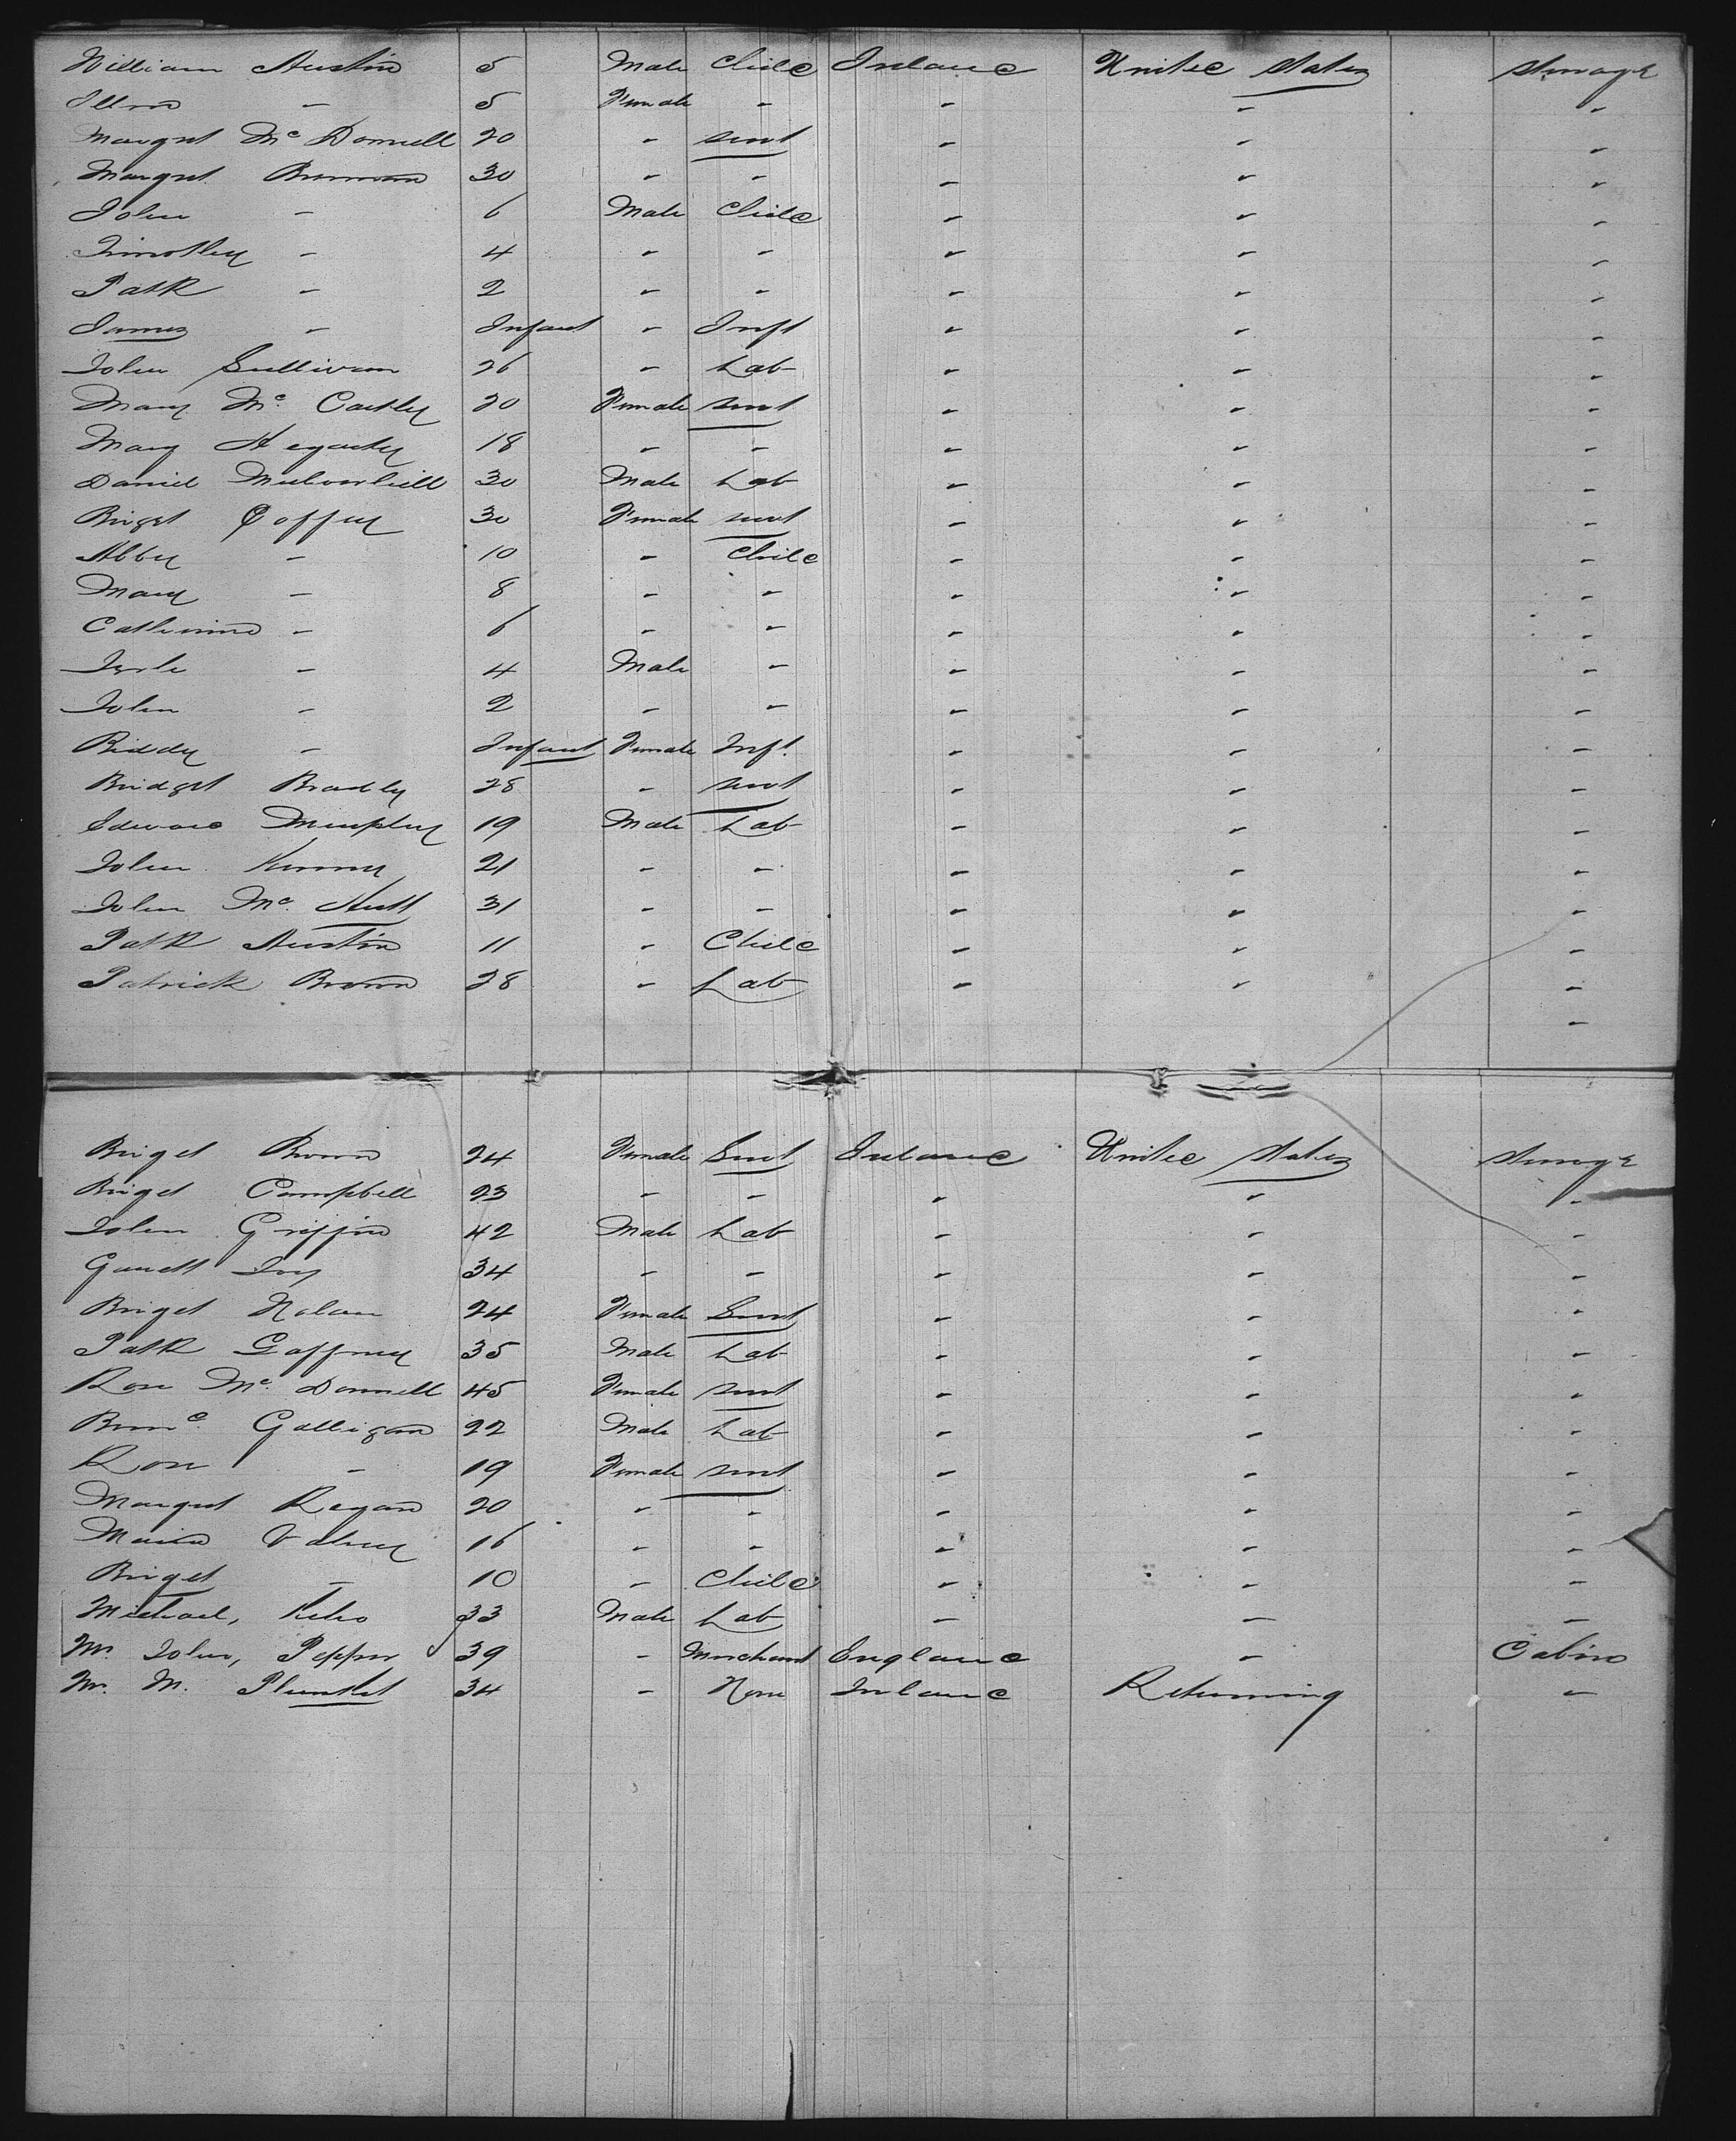 William Austin 5 Male Child Ireland United States Steerage
Ellen - 5 Female - - - -
Margret Mc Donnell 20 - Servt - - -
Margret Brennan 30 - - - - -
John - 6 Male Child - - -
Timothy - 4 - - - - -
Patk - 2 - - - - -
James - Infant - Inft - - -
John Sullivan 26 - Lab - - -
Mary Mc Carthy 20 Female Servt - - -
Mary Hegarty 18 - - - - -
Daniel Mulvihill 30 Male Lab - - -
Briget Coffey 30 Female Servt - - -
Abby - 10 - Child - - -
Mary - 8 - - - - -
Catherine - 6 - - - - -
- 4 Male - - - -
John - 2 - - - - -
Biddy - Infant Female Inft - - -
Bridget Bradly 28 - Servt - - -
Edward Murphy 19 Male Lab - - -
John Kenny 21 - - - - -
John Mc 31 - - - - -
Patk Austin 11 - Child - - -
Patrick Brown 28 - Lab - - -
-
Briget Brown 24 Female Servt Ireland United States Steerage
Briget Campbell 23 - - - - -
John Griffin 42 Male Lab - - -
Garrett Joy 34 - - - - -
Briget Nolan 24 Female Servt - - -
Patk Gaffney 35 Male Lab - - -
Rose Mc Donnell 45 Female Servt - - -
Bernd Galligan 22 Male Lab - - -
Rose - 19 Female Servt - - -
Margret Regan 20 - - - - -
Maria 16 - - - - -
Briget - 10 - Child - - -
Michael, Keho 33 Male Lab - - -
Mr. John, Pepper 39 - Merchant England - Cabin
Mr. M. Plunket 34 - None Ireland Returning -